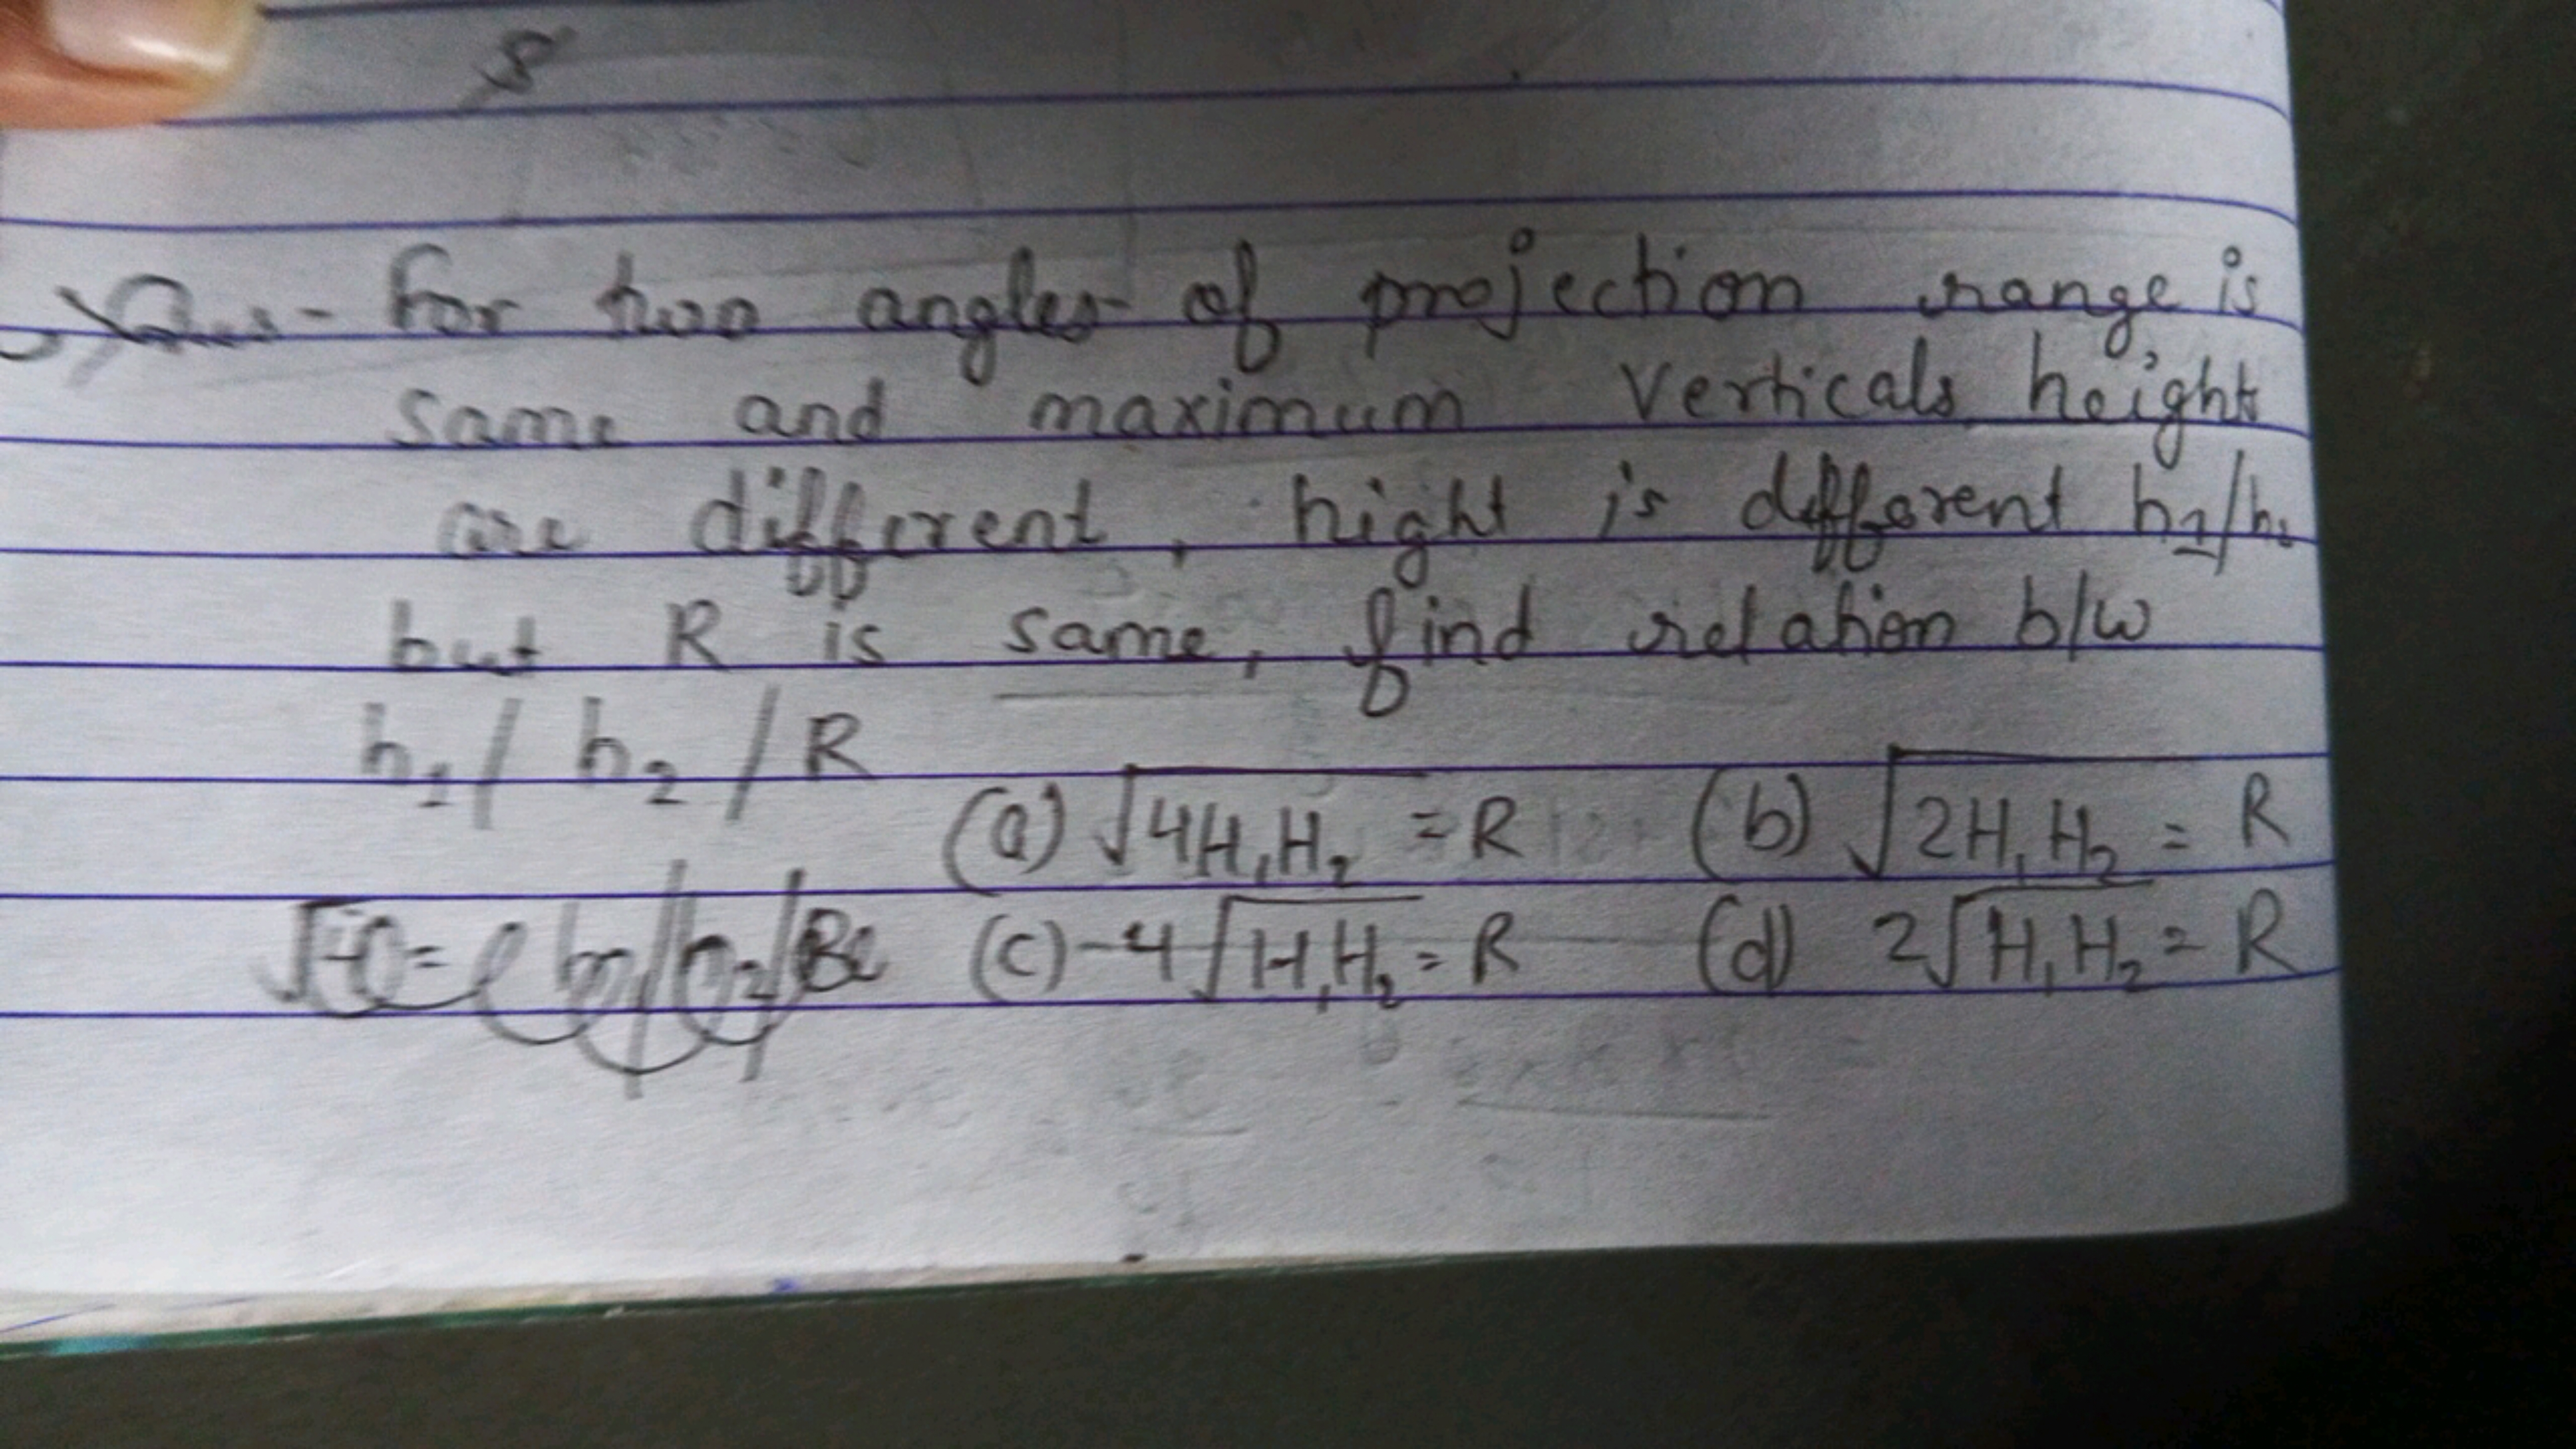 8
Ques- For two angles of projection range is
same and maximum verticals height
are different, hight is different h1/h2
but R is same, find relation b/w
h1/ h2 / R
(a) √4H1H2 = R (b) √2H1H2 = R
(c) -4√H1H2 = R (d) 2√H1H2 = R